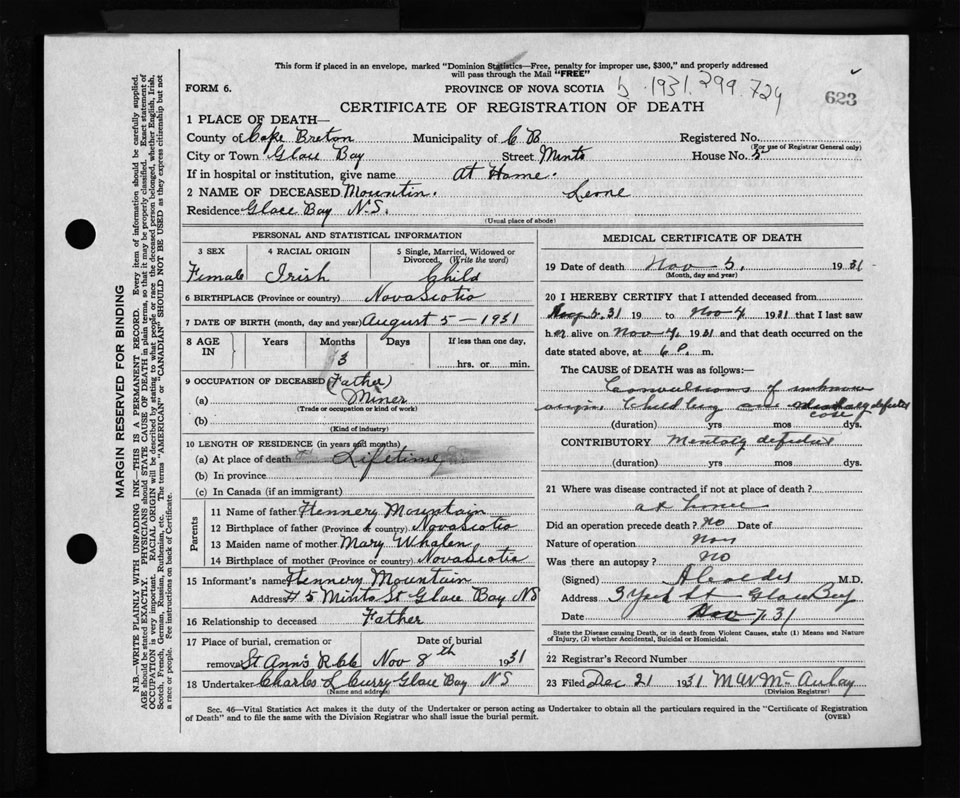 This form if placed in an envelope, marked "Dominion Statistics—Free, penalty for improper use, $300," and properly addressed
will pass through the Mail "FREE"
FORM 6. PROVINCE OF NOVA SCOTIA b 1931.299.724
CERTIFICATE OF REGISTRATION OF DEATH 623
1 PLACE OF DEATH—
County of Cape Breton Municipality of C B Registered No.
(For use of Registrar General only)
City or Town Glace Bay Street Minto House No. 5
If in hospital or institution, give name At Home.
2 NAME OF DECEASED Mountin. Leone
Residence Glace Bay N.S.
(Usual place of abode)
PERSONAL AND STATISTICAL INFORMATION
3 SEX 4 RACIAL ORIGIN 5 Single, Married, Widowed or Divorced. (Write the word)
Female Irish Child
6 BIRTHPLACE (Province or country) Nova Scotia
7 DATE OF BIRTH (month, day and year) August 5 — 1931
8 AGE IN Years Months Days If less than one day,
3 hrs. or min.
9 OCCUPATION OF DECEASED (Father)
(a) Miner
(Trade or occupation or kind of work)
(b)
(Kind of industry)
10 LENGTH OF RESIDENCE (in years and months)
(a) At place of death Lifetime
(b) In province
(c) In Canada (if an immigrant)
Parents
11 Name of father Hennery Mountain
12 Birthplace of father (Province or country) Nova Scotia
13 Maiden name of mother Mary Whalen
14 Birthplace of mother (Province or country) Nova Scotia
15 Informant's name Hennery Mountain
Address # 5 Minto St Glace Bay NS
16 Relationship to deceased Father
17 Place of burial, cremation or Date of burial
removal St Ann's Nov 8th 1931
18 Undertaker Charles L Curry Glace Bay NS
(Name and address)
MEDICAL CERTIFICATE OF DEATH
19 Date of death Nov 5, 1931
(Month, day and year)
20 I HEREBY CERTIFY that I attended deceased from
5.31 19 to Nov 4 1931 that I last saw
her alive on Nov 4, 1931 and that death occurred on the
date stated above, at 6 P. m.
The CAUSE of DEATH was as follows:—
Convulsions of unknown
origin Child being a mentally defected
case
(duration) yrs mos dys.
CONTRIBUTORY
(duration) yrs mos dys.
21 Where was disease contracted if not at place of death?
at home
Did an operation precede death? No Date of
Nature of operation
Was there an autopsy? No
(Signed) M.D.
Address 3 York St Glace Bay
Date 7.31
State the Disease causing Death, or in death from Violent Causes, state (1) Means and Nature
of Injury, (2) whether Accidental, Suicidal or Homicidal.
22 Registrar's Record Number
23 Filed Dec 21 1931 M W McAulay
(Division Registrar)
Sec. 46—Vital Statistics Act makes it the duty of the Undertaker or person acting as Undertaker to obtain all the particulars required in the "Certificate of Registration
of Death" and to file the same with the Division Registrar who shall issue the burial permit. (OVER)
MARGIN RESERVED FOR BINDING
N.B.—WRITE PLAINLY WITH UNFADING INK—THIS IS A PERMANENT RECORD. Every item of information should be carefully supplied.
AGE should be stated EXACTLY. PHYSICIANS should STATE CAUSE OF DEATH in plain terms, so that it may be properly classified. Exact statement of
OCCUPATION is very important. RACIAL ORIGIN will be described by stating to what people or race the deceased person belonged, whether English, Irish,
Scotch, French, German, Russian, Ruthenian, etc. The terms "AMERICAN" or "CANADIAN" SHOULD NOT BE USED as they express citizenship but not
a race or people. Fee instructions on back of Certificate.